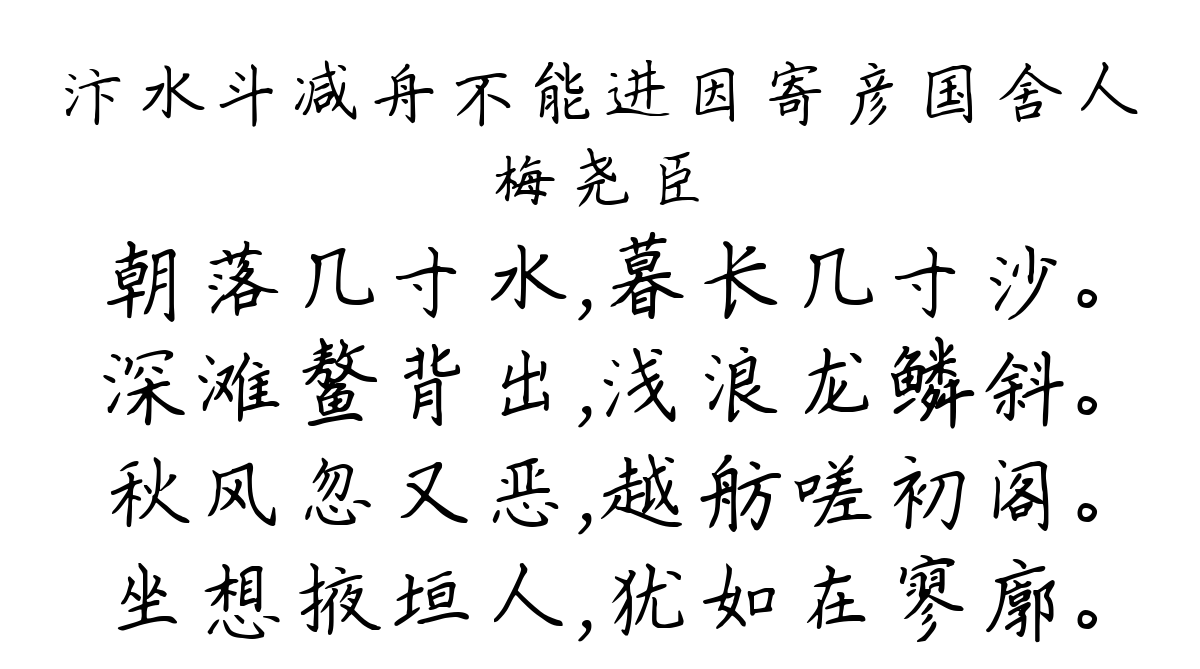 汴水斗减舟不能进因寄彦国舍人
梅尧臣
朝落几寸水,暮长几寸沙。
深滩鳌背出,浅浪龙鳞斜。
秋风忽又恶,越舫嗟初阁。
坐想掖垣人,犹如在寥廓。